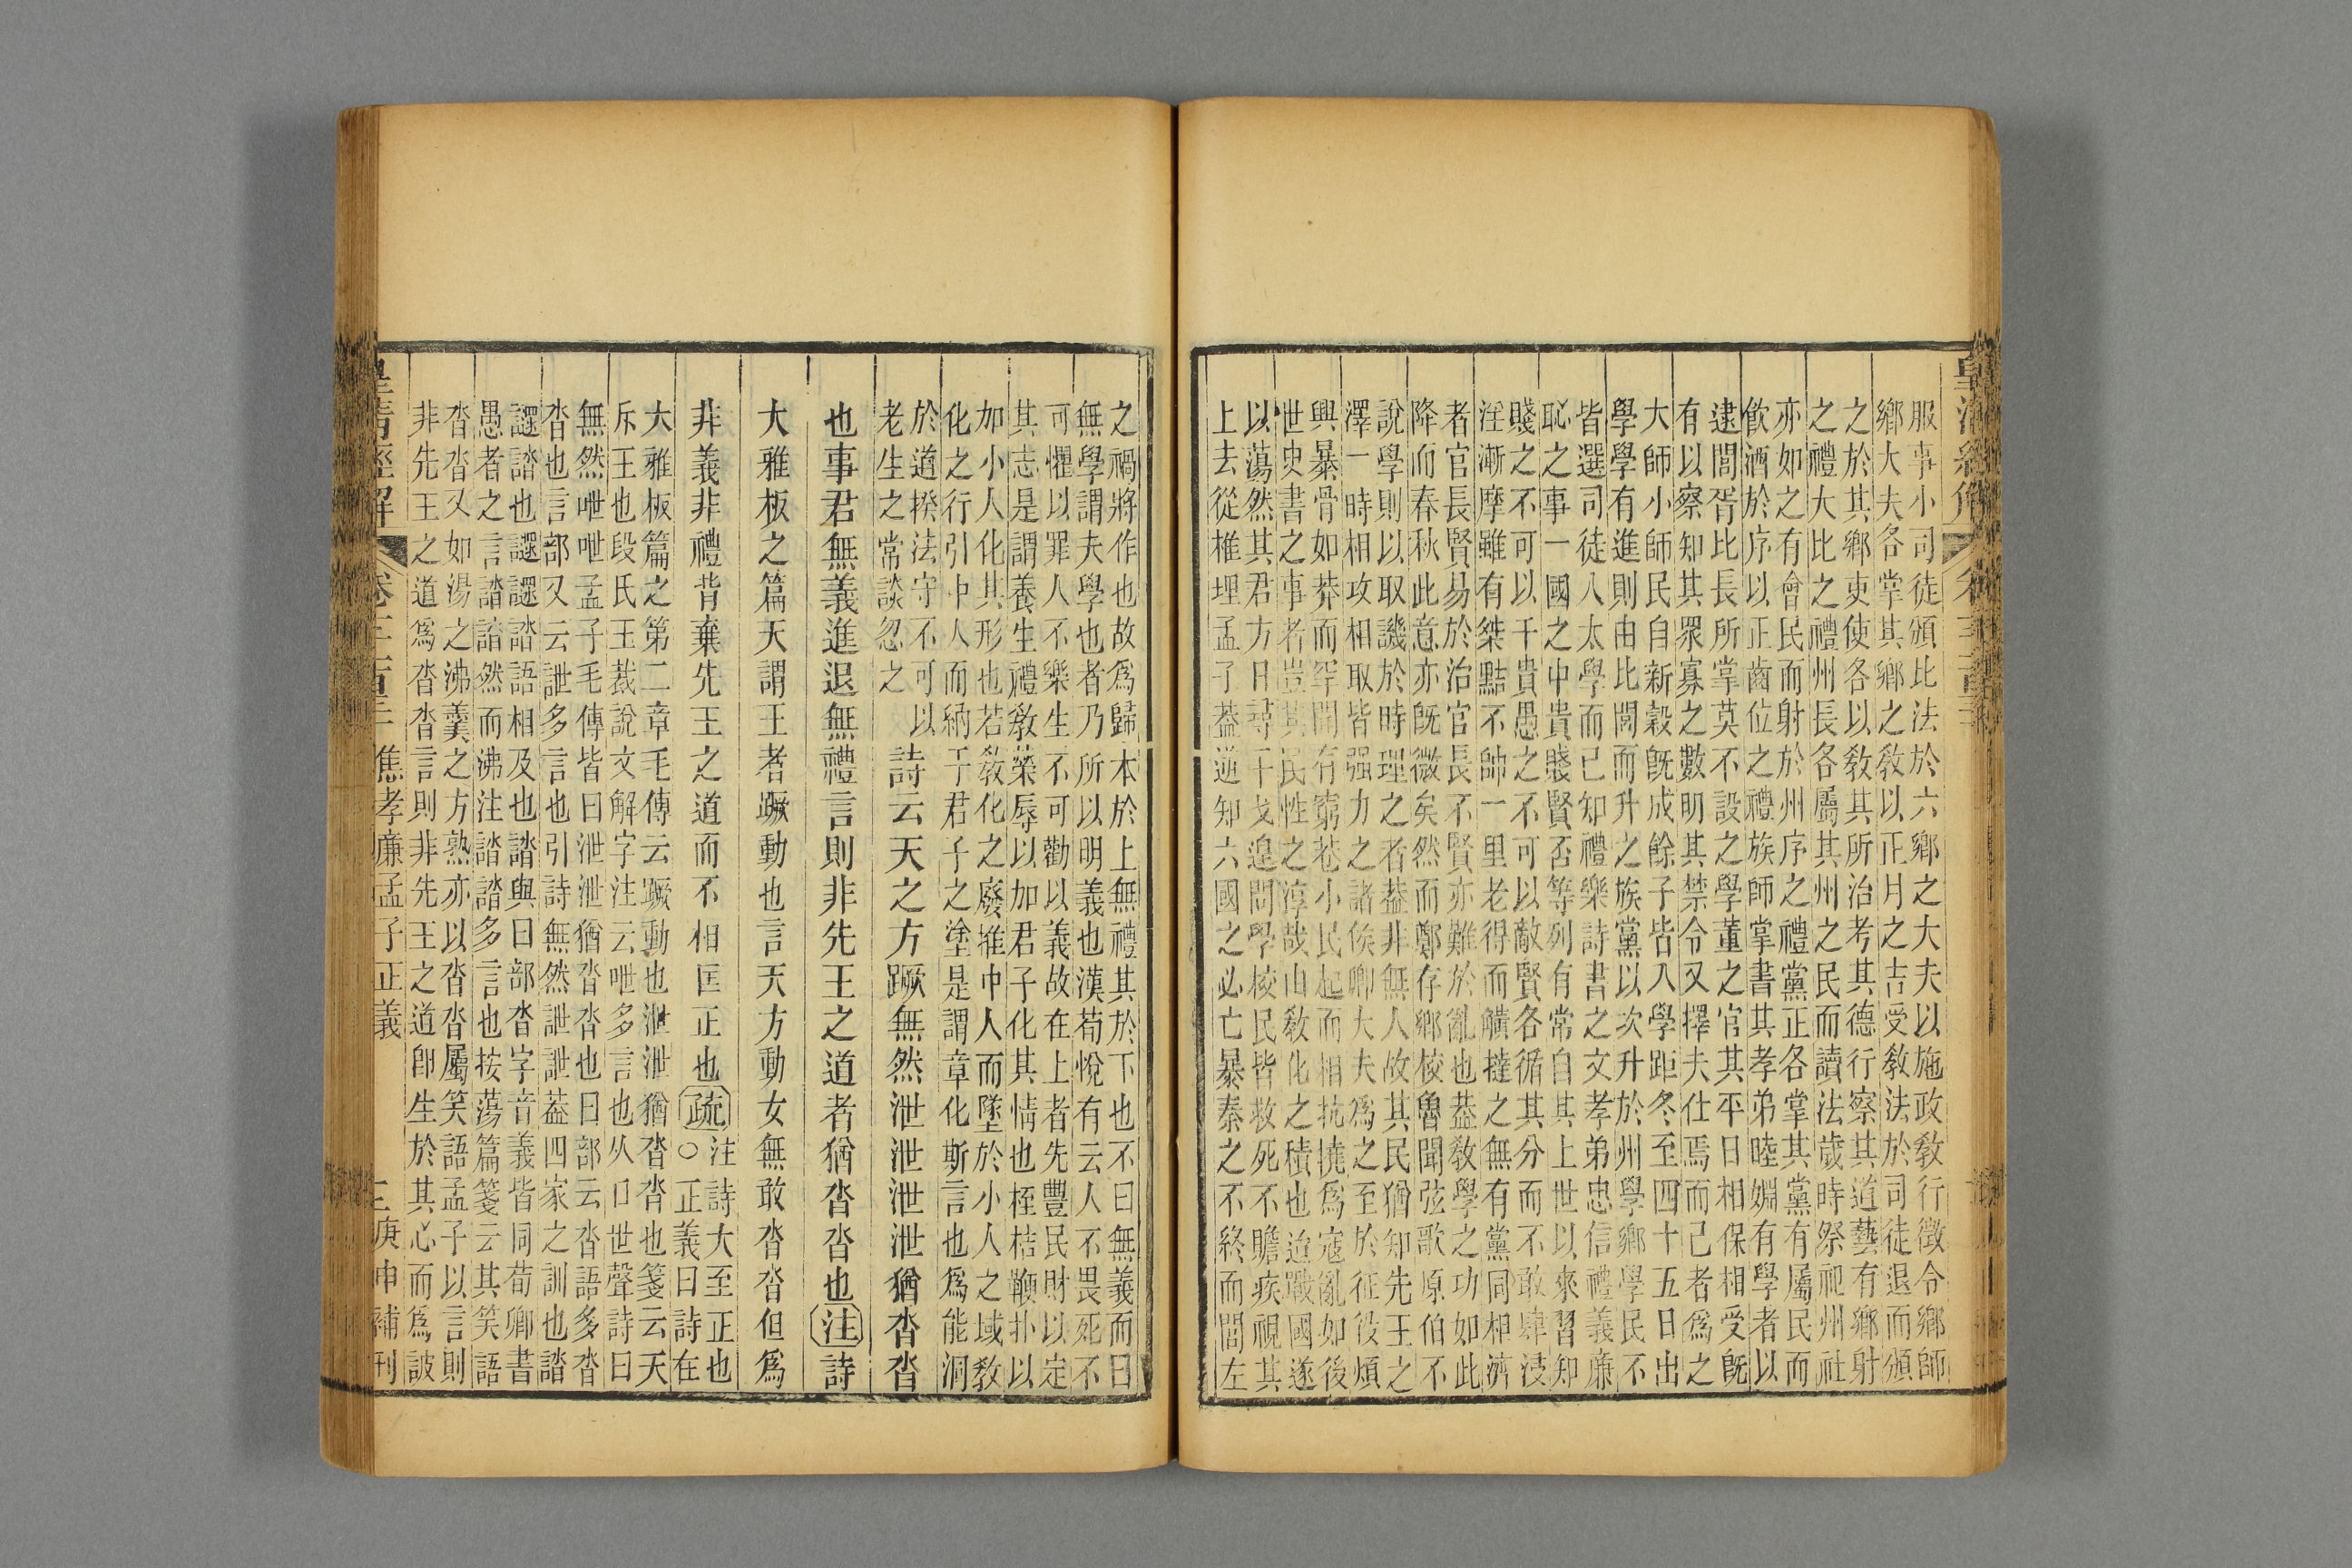 服事小司徒頒比法於六鄉之大夫以施政敎行徵令鄉師
鄉大夫各掌其鄉之敎以正月之吉受敎法於司徒退而頒
之於其鄉吏使各以敎其所治考其德行察其道藝有鄉射
之禮大比之禮州長各屬其州之民而讀法歲時祭祀州社
亦如之有會民而射於州序之禮黨正各掌其黨有屬民而
飲酒於序以正齒位之禮族師掌書其孝弟睦婣有學者以
逮閭胥比長所掌莫不設之學董之官其平日相保相受旣
有以察知其眾寡之數明其禁令又擇夫仕焉而已者爲之
大師小師民自新穀旣成餘子皆入學距冬至四十五日出
學學有進則由比閭而升之族黨以次升於州學鄉學民不
皆選司徒八太學而已知禮樂詩書之文孝弟忠信禮義廉
恥之事一國之中貴賤賢否等列有常自其上世以來習知
賤之不可以干貴愚之不可以敵賢各循其分而不敢肆浸
淫漸摩雖有桀黠不帥一里老得而觵撻之無有黨同相濟
者官長賢易於治官長不賢亦難於亂也葢敎學之功如此
降而春秋此意亦旣微矣然而鄭存鄉校魯聞弦歌原伯不
說學則以取譏於時理之者葢非無人故其民猶知先王之
澤一時相攻相取皆强力之諸侯卿大夫爲之至於征役煩
興暴骨如莽而罕聞有窮巷小民起而相抗撓爲寇亂如後
世史書之事者豈其民性之淳哉由敎化之積也迨戰國遂
以蕩然其君方日尋干戈遑問學校民皆救死不贍疾視其
上去從椎埋孟子葢逆知六國之必亡暴秦之不終而閭左
之禍將作也故爲歸本於上無禮其於下也不曰無義而曰
無學謂夫學也者乃所以明義也漢荀悅有云人不畏死不
可懼以罪人不樂生不可勸以義故在上者先豐民財以定
其志是謂養生禮敎榮辱以加君子化其情也桎梏鞭扑以
加小人化其形也若敎化之廢推中人而墜於小人之域敎
化之行引中人而納于君子之塗是謂章化斯言也爲能洞
於道揆法守不可以
老生之常談忽之
詩云天之方蹶無然泄泄泄泄猶沓沓
也事君無義進退無禮言則非先王之道者猶沓沓也注詩
大雅板之篇天謂王者蹶動也言天方動女無敢沓沓但爲
非義非禮背棄先王之道而不相匡正也疏
注詩大至正也
○正義曰詩在
大雅板篇之第二章毛傳云蹶動也泄泄猶沓沓也箋云天
斥王也段氏玉裁說文解字注云呭多言也从口世聲詩曰
無然呭呭孟子毛傳皆曰泄泄猶沓沓也曰部云沓語多沓
沓也言部又云詍多言也引詩無然詍詍葢四家之訓也諮
䜚誻也䜚䜚誻語相及也誻與曰部沓字音義皆同荀卿書
愚者之言誻誻然而沸注誻誻多言也按蕩篇箋云其笑語
沓沓又如湯之沸羹之方熟亦以沓沓屬笑語孟子以言則
非先王之道爲沓沓言則非先王之道卽生於其心而爲詖
皇清經解
焦孝廉孟子正義
庚申補刊